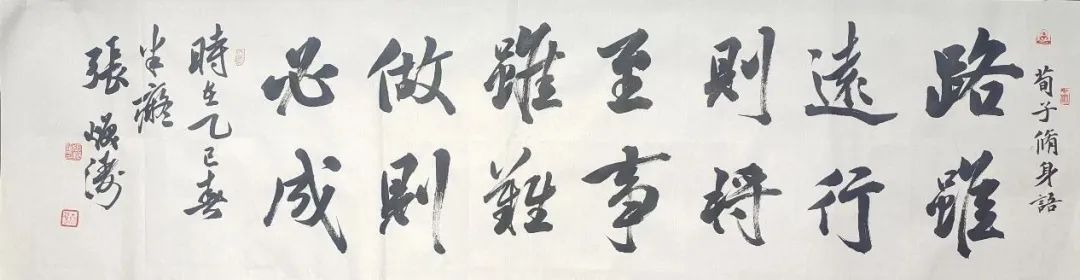 荀子脩身語
路雖
遠行
則將
至事
雖難
做則
必成
時在乙巳春
半癡
張煥濤